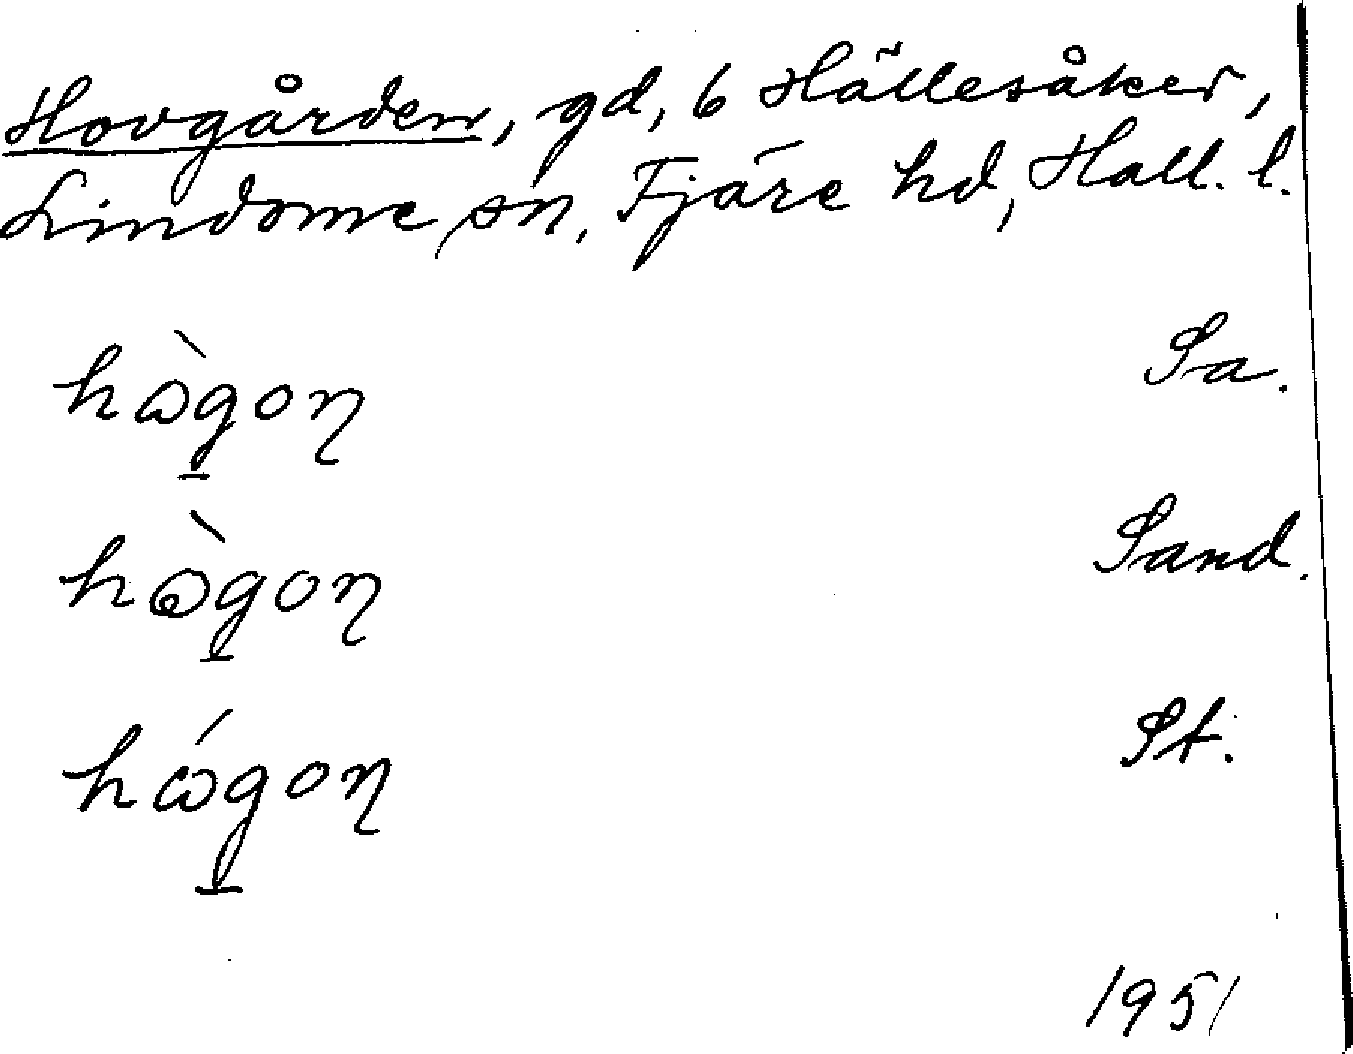 Hovgården, gd, 6 Hällesåker,
Lindome sn, Fjäre hd, Hall. l.
hὼgoŋ Sa.
hὼgoŋ Sand.
hώgoŋ St.
1951